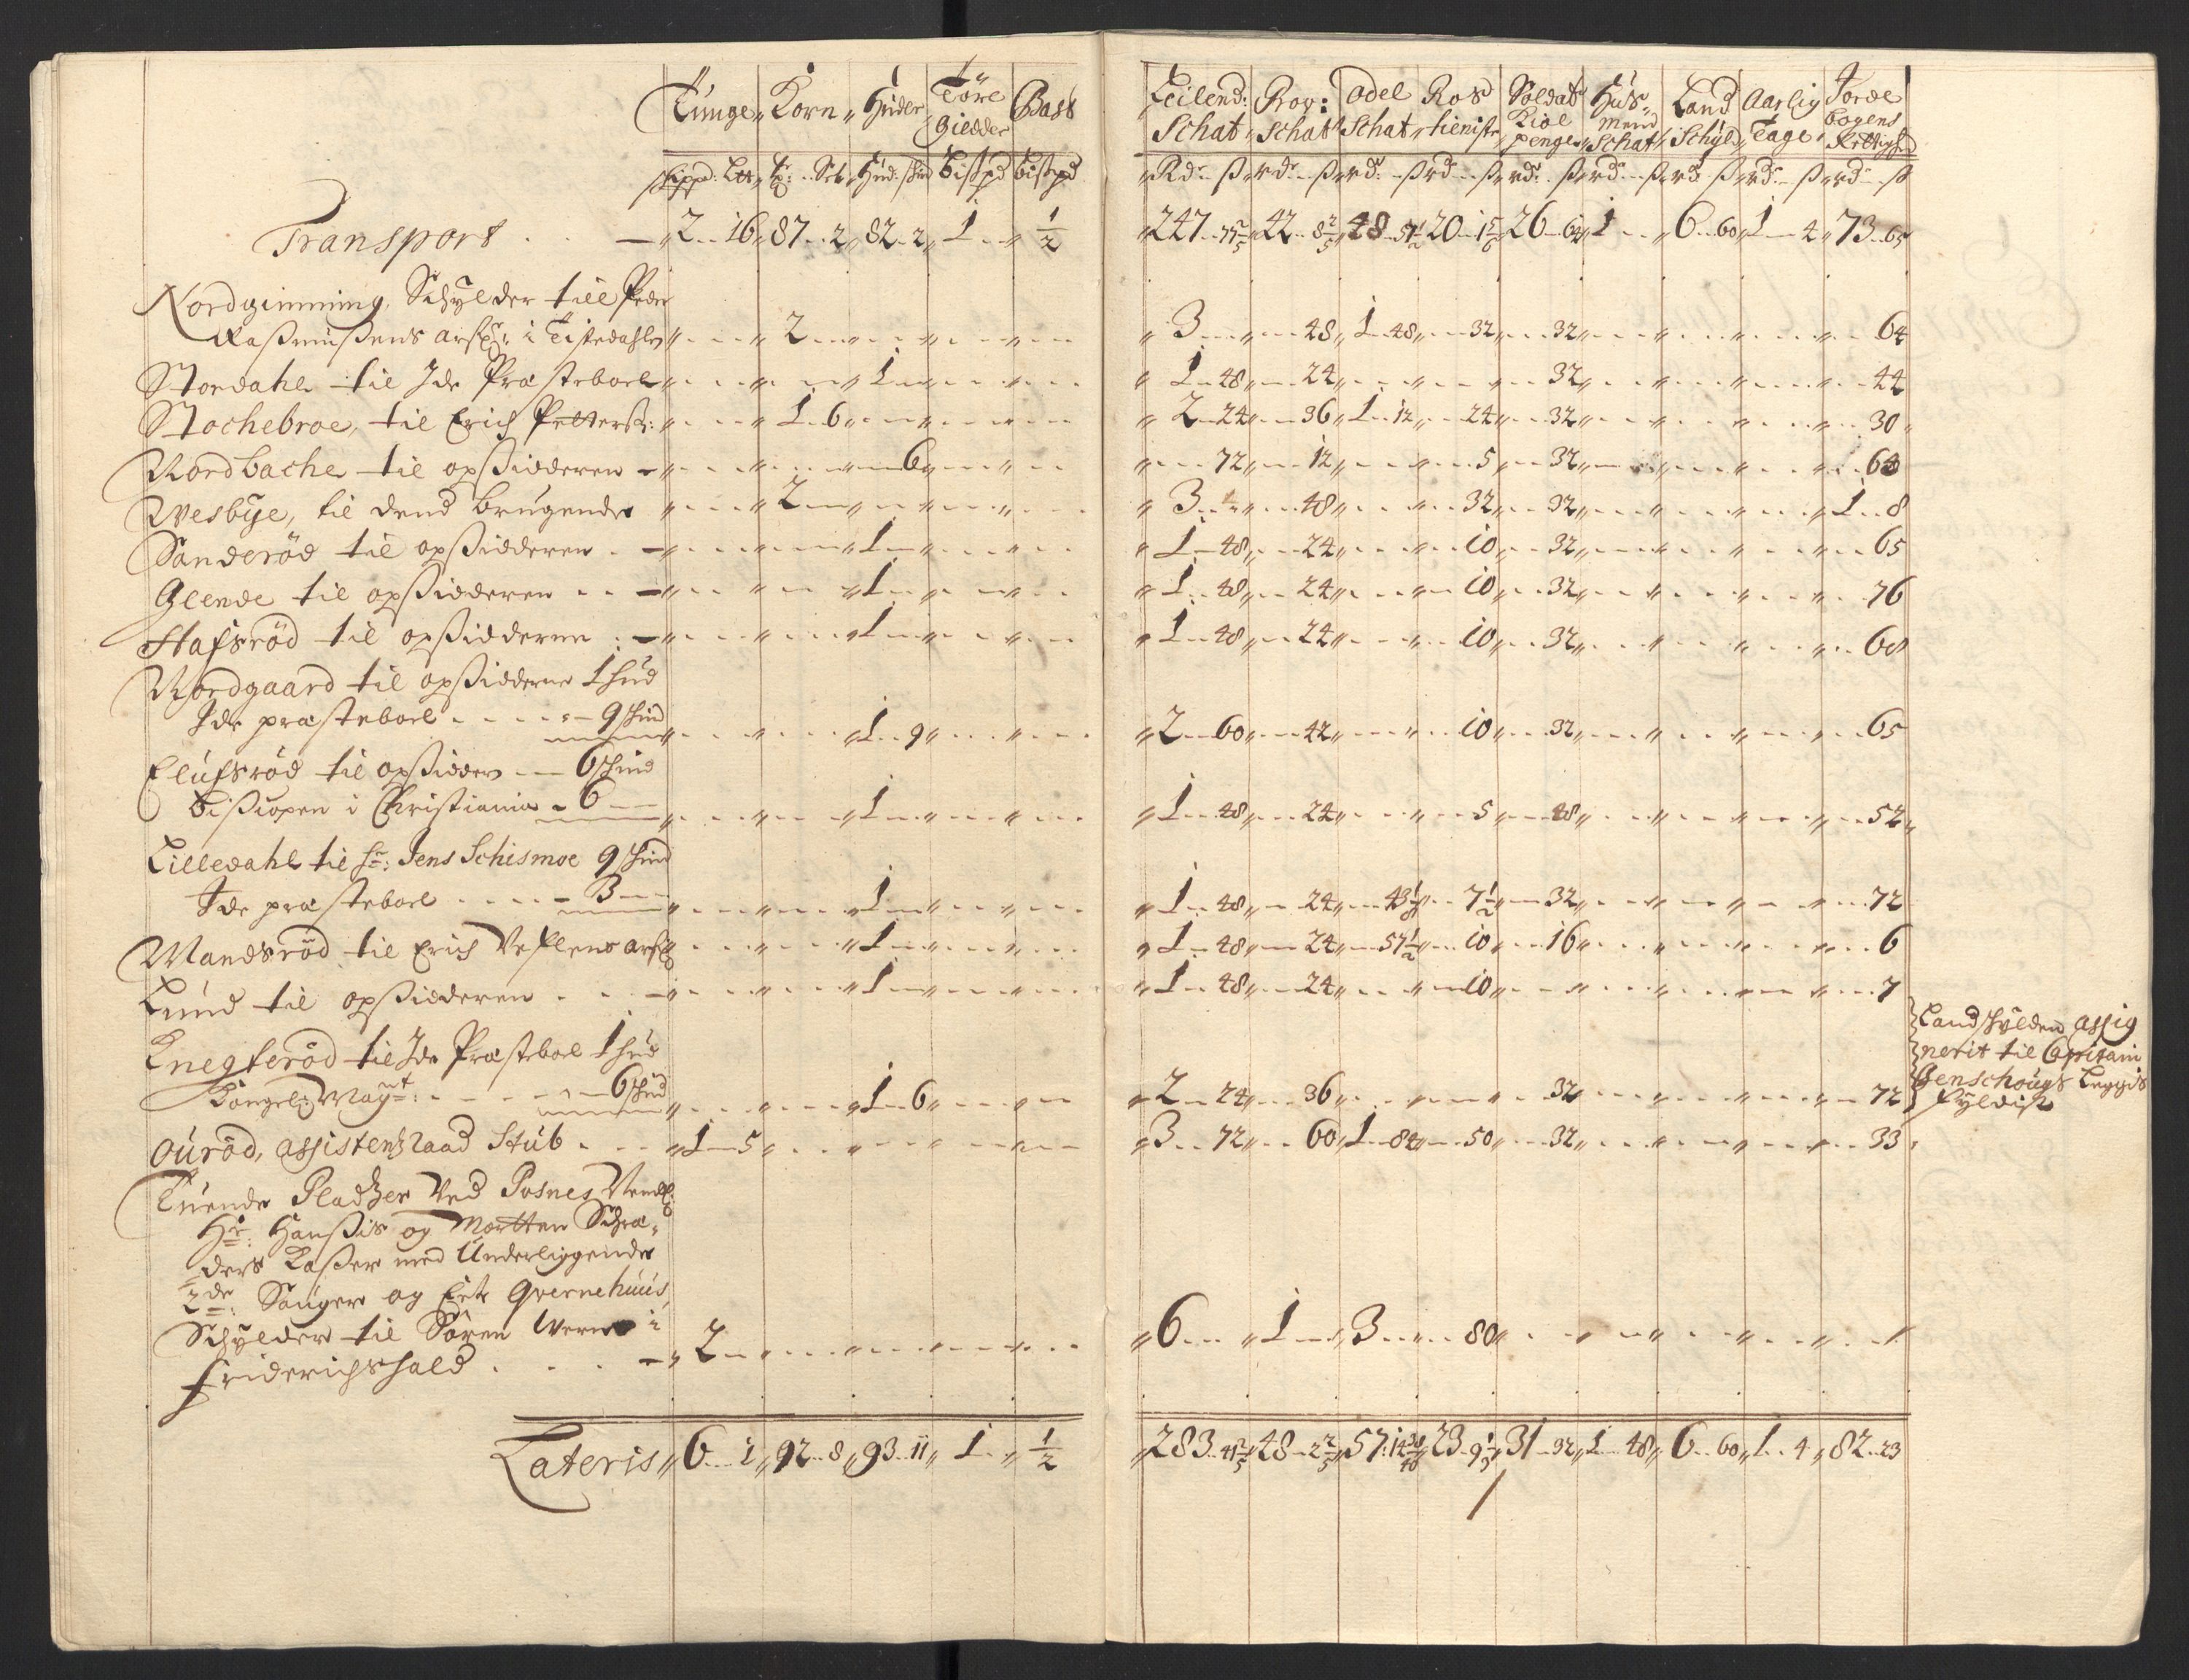 Tunge „ Korn „ Huder Töre Giedder Bast
Schippd: Lts „ Tr: Set „ Hud: Skind Bispd Bispd
Transport . . — „ 2 .. 16 „ 87 .. 2 „ 82 .. 2 „ 1 .. „ 1/2
Nordgimming, Schÿlder till Peder
Rasmusens arf: i Tistedahlen „ . . . „ 2
Stordahl til Ide Præsteboel „ 1
Stochebroe, til Erich Petters: „ 1 .. 6
Nordbache til opsidderen 6
Wesbÿe, til dend brugende 2
Sanderöd til opsidderen . — 1
Glende til opsidderen . . — 1
Stafsröd til opsidderne . — 1
Nordgaard til opsidderne 1 hud
Ide præsteboel . . . . 9 skind 1 .. 9
Elufsröd til opsidder — 6 skind
bispopen i Christiania . 6 — 1
Lilledahl til hr: Jens Schismoe 9 skind
Ide præsteboel . . . . — 3 — 1
Mandsröd til Erich arf 1
Lund til opsidderen . . — 1
Knegteröd til Ide Præsteboel 1 hud
Kongel: Maÿt: . . . 6 skind 1 .. 6
Ouröd, assistentzraad Stub . . . „ 1 — 5
Tuende Pladtzer Ved Posnes
Hr: Hansis og Mortten Schrø-
ders med Underliggende
2de: Sauger og Et Qvernehuus
Schÿlder til Sören Werne i
Friderichshald . . . — „ 2
Lateris „ 6 .. 1 „ 92 .. 8 „ 93 .. 11 „ 1 .. „ 1/2
Leilend: Schat „ Prov: Schat Odel Schat „ Ros tieniste Soldat Kiole penge „ Hus mend Schat Land Schÿld Aarlig Tage Jorde bogens Rettighed
„ Rd: ß rd: ß rd: ß rd: ß rd: ß rd: ß rd: ß rd: ß rd: ß
„ 247 .. 75 2/5 „ 42 .. 8 2/5 „ 48 .. 57 1/2 20 .. 15 26 .. 64 „ 1 .. „ 6 .. 60 „ 1 .. 4 „ 73 .. 65
„ 3 .. „ .. 48 „ 1 .. 48 „ .. 32 „ .. 32 „ 64
„ 1 .. 48 „ .. 24 „ 32 „ 44
„ 2 .. 24 „ .. 36 „ 1 .. 12 „ .. 24 „ .. 32 „ 30
„ .. 72 „ .. 12 „ 5 „ .. 32 „ 68
„ 3 .. „ .. 48 „ 32 „ .. 32 „ 1 .. 8
„ 1 .. 48 „ .. 24 „ 10 „ .. 32 „ 65
„ 1 .. 48 „ .. 24 „ 10 „ .. 32 „ 76
„ 1 .. 48 „ .. 24 „ 10 „ .. 32 „ 68
„ 2 .. 60 „ .. 42 „ 10 „ .. 32 „ 65
„ 1 .. 48 „ .. 24 „ 5 „ .. 48 „ 52
„ 1 .. 48 „ .. 24 „ .. 43 1/8 „ .. 7 1/2 „ .. 32 „ 72
„ 1 .. 48 „ .. 24 „ .. 57 1/2 „ .. 10 „ .. 16 „ 6
„ 1 .. 48 „ .. 24 „ 10 „ 7
„ 2 .. 24 „ .. 36 „ 32 „ 72
„ 3 .. 72 „ .. 60 „ 1 .. 84 „ .. 50 „ .. 32 „ 33
„ 6 .. „ 1 .. „ 3 .. „ .. 80 „
„ 283 .. 41 2/5 „ 48 .. 2 2/5 „ 57 : 14 „ 23 .. 9 „ 31 .. 32 „ 1 .. 48 „ 6 .. 60 „ 1 .. 4 „ 82 .. 23
Landskÿlden assig
nerit til Capitain
Genschougs Leggds
fÿldist